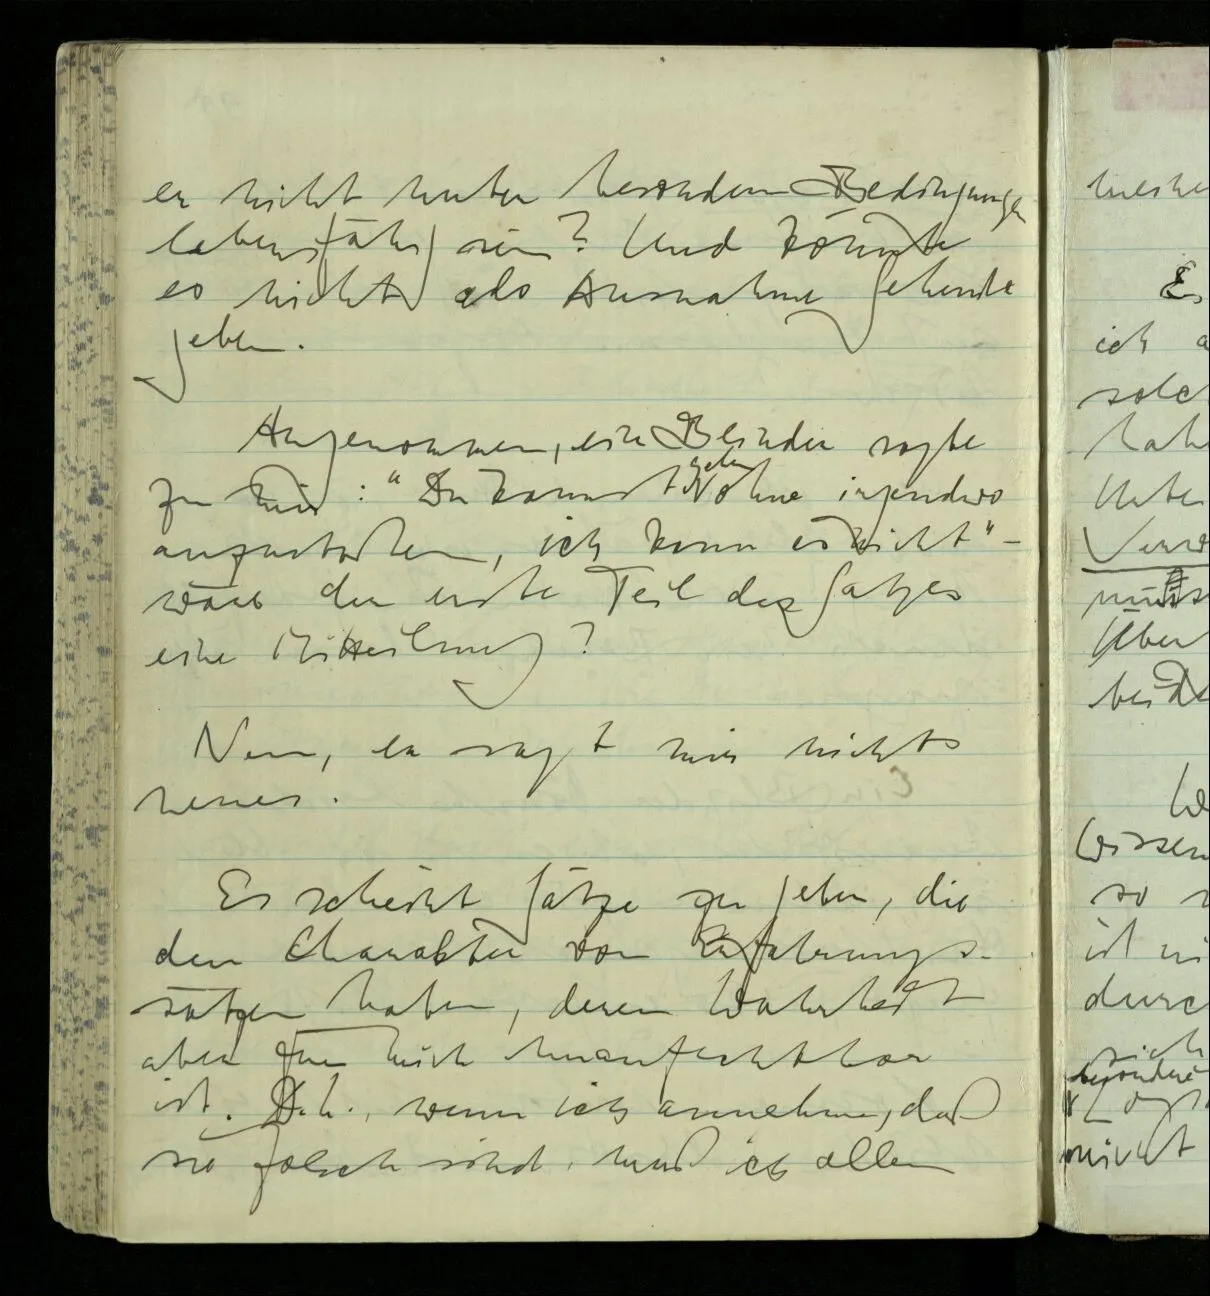 er nicht unter besondern Bedingungen
lebensfähig sein? Und könnte
es nicht als Ausnahme Sehende
geben.
Angenommen, ein Blinder sagte
zu mir: "Du kannst gehen ohne irgendwo
anzustoßen, ich kann es nicht" –
wäre der erste Teil des Satzes
eine Mitteilung?
Nun, er sagt mir nichts
neues.
Es scheint Sätze zu geben, die
den Charakter von Erfahrungs-
sätzen haben, deren Wahrheit
aber für mich unanfechtbar
ist. D.h., wenn ich annehme, daß
sie falsch sind, muß ich allen
Es
ich a
solc
hab
Unte
Über
Wissen
so
durc
sich
nicht